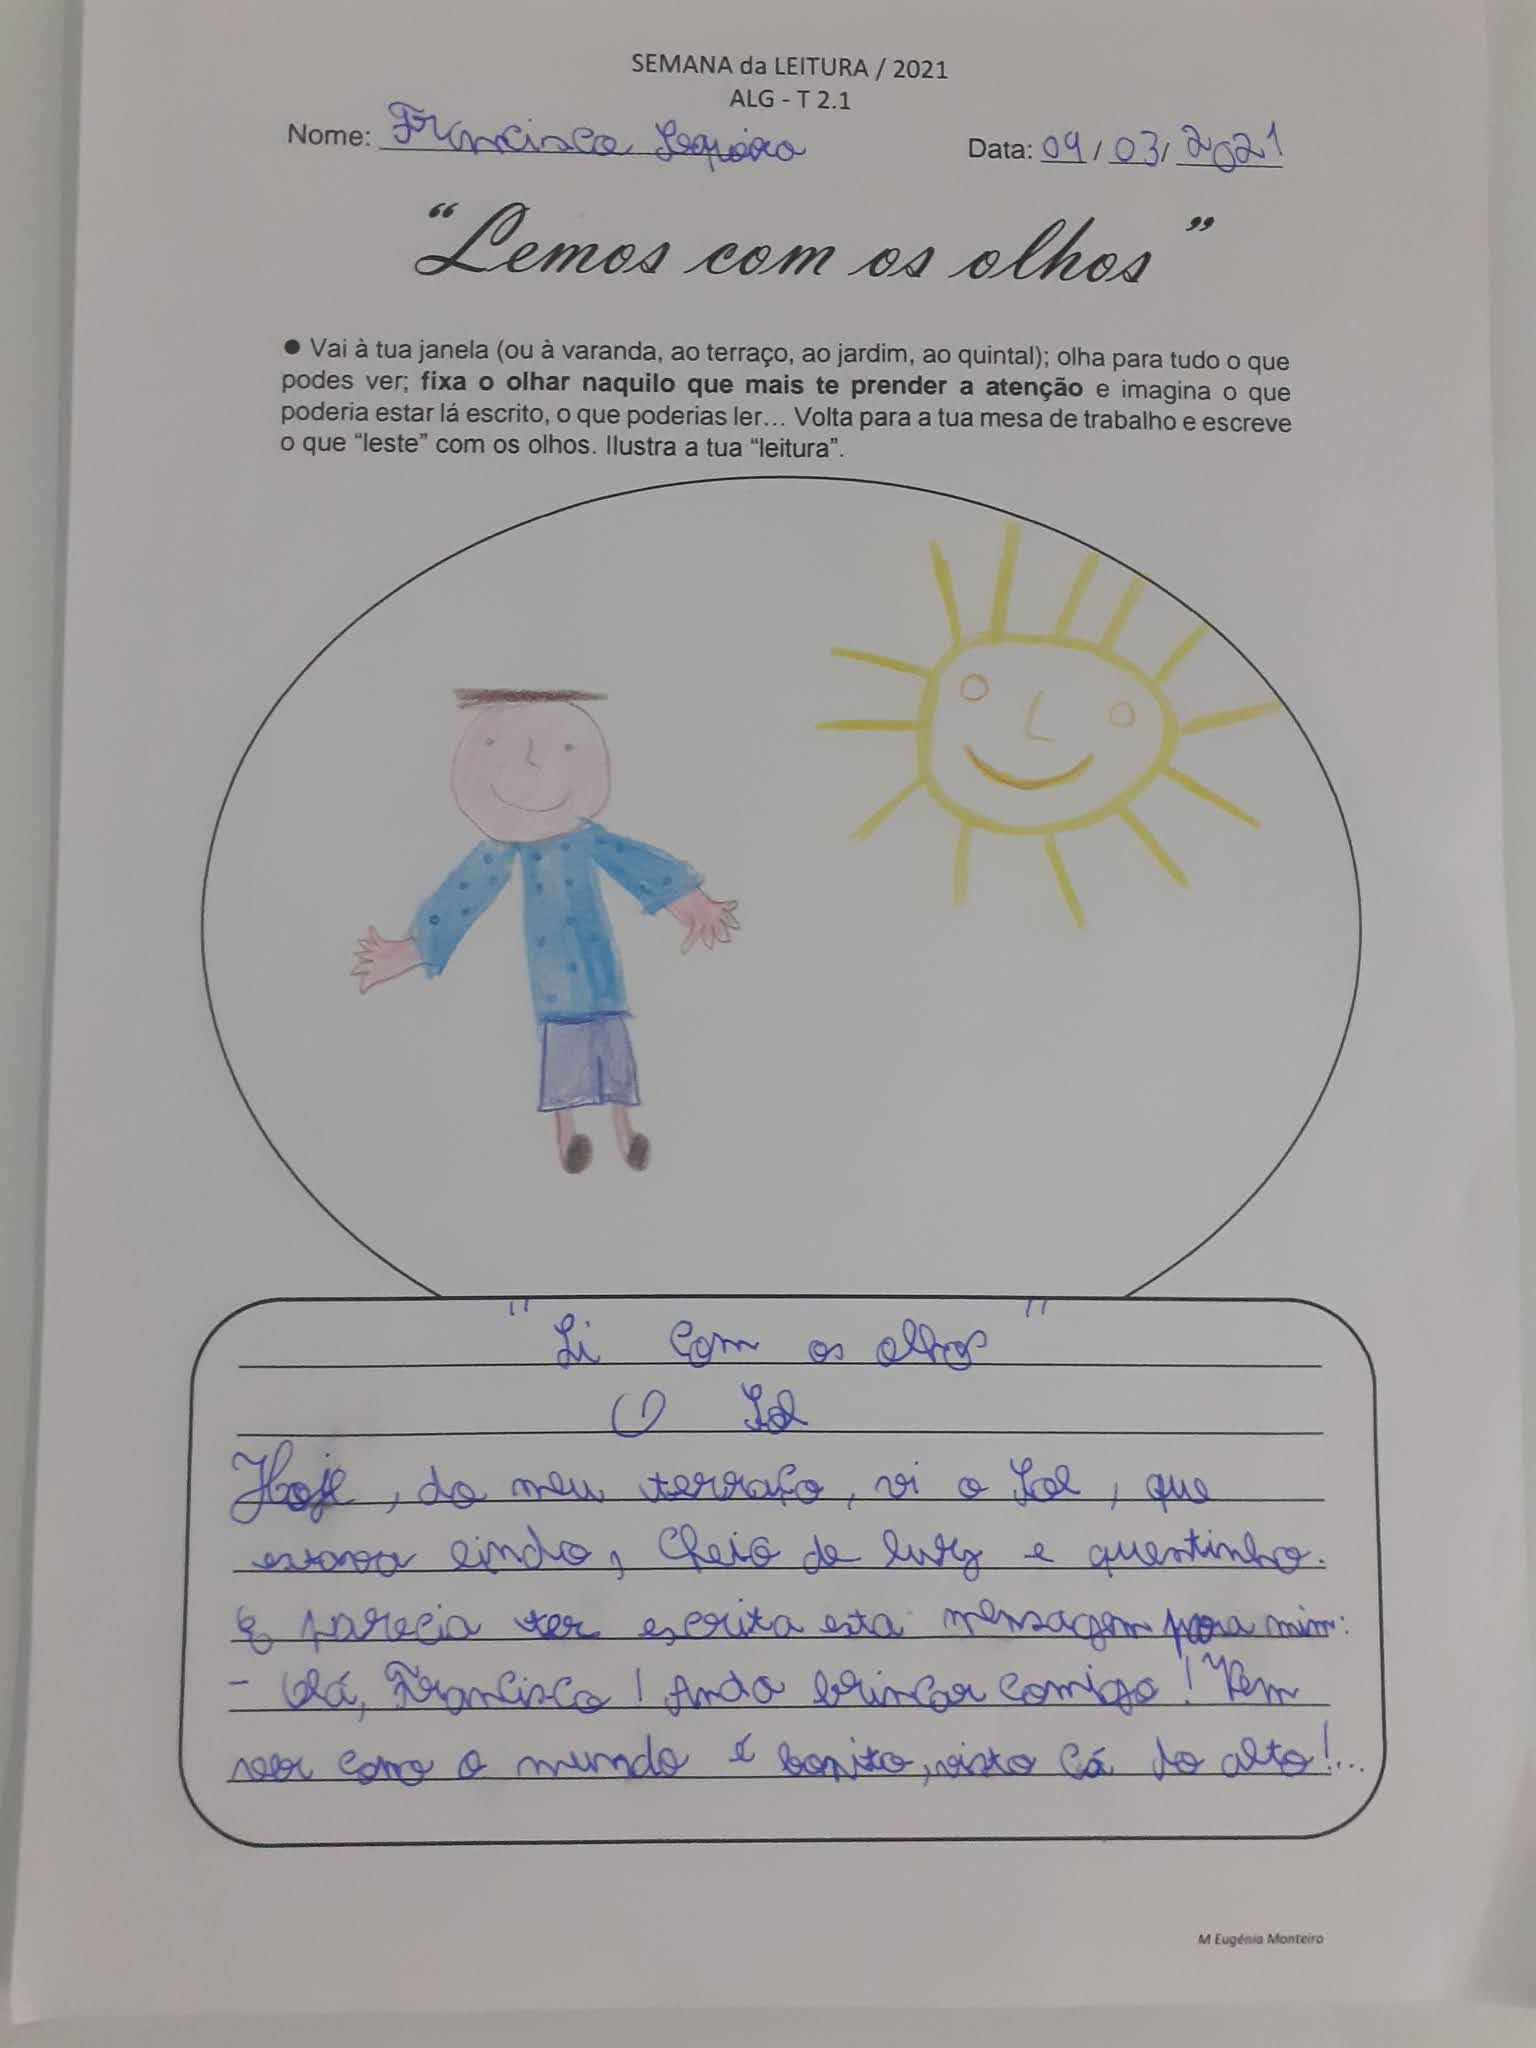 SEMANA da LEITURA / 2021
ALG - T 2.1
Nome: Francisco Sequeira Data: 09/03/2021
“Lemos com os olhos”
● Vai à tua janela (ou à varanda, ao terraço, ao jardim, ao quintal); olha para tudo o que
podes ver; fixa o olhar naquilo que mais te prender a atenção e imagina o que
poderia estar lá escrito, o que poderias ler... Volta para a tua mesa de trabalho e escreve
o que “leste” com os olhos. Ilustra a tua “leitura”.
"Li com os olhos"
O Sol
Hoje, do meu terraço, vi o Sol, que
estava lindo, cheio de luz e quentinho.
E parecia ter escrita esta mensagem para mim:
- Olá, Francisco! Anda brincar comigo! Vem
ver como o mundo é bonito, visto cá do alto!...
M Eugénia Monteiro